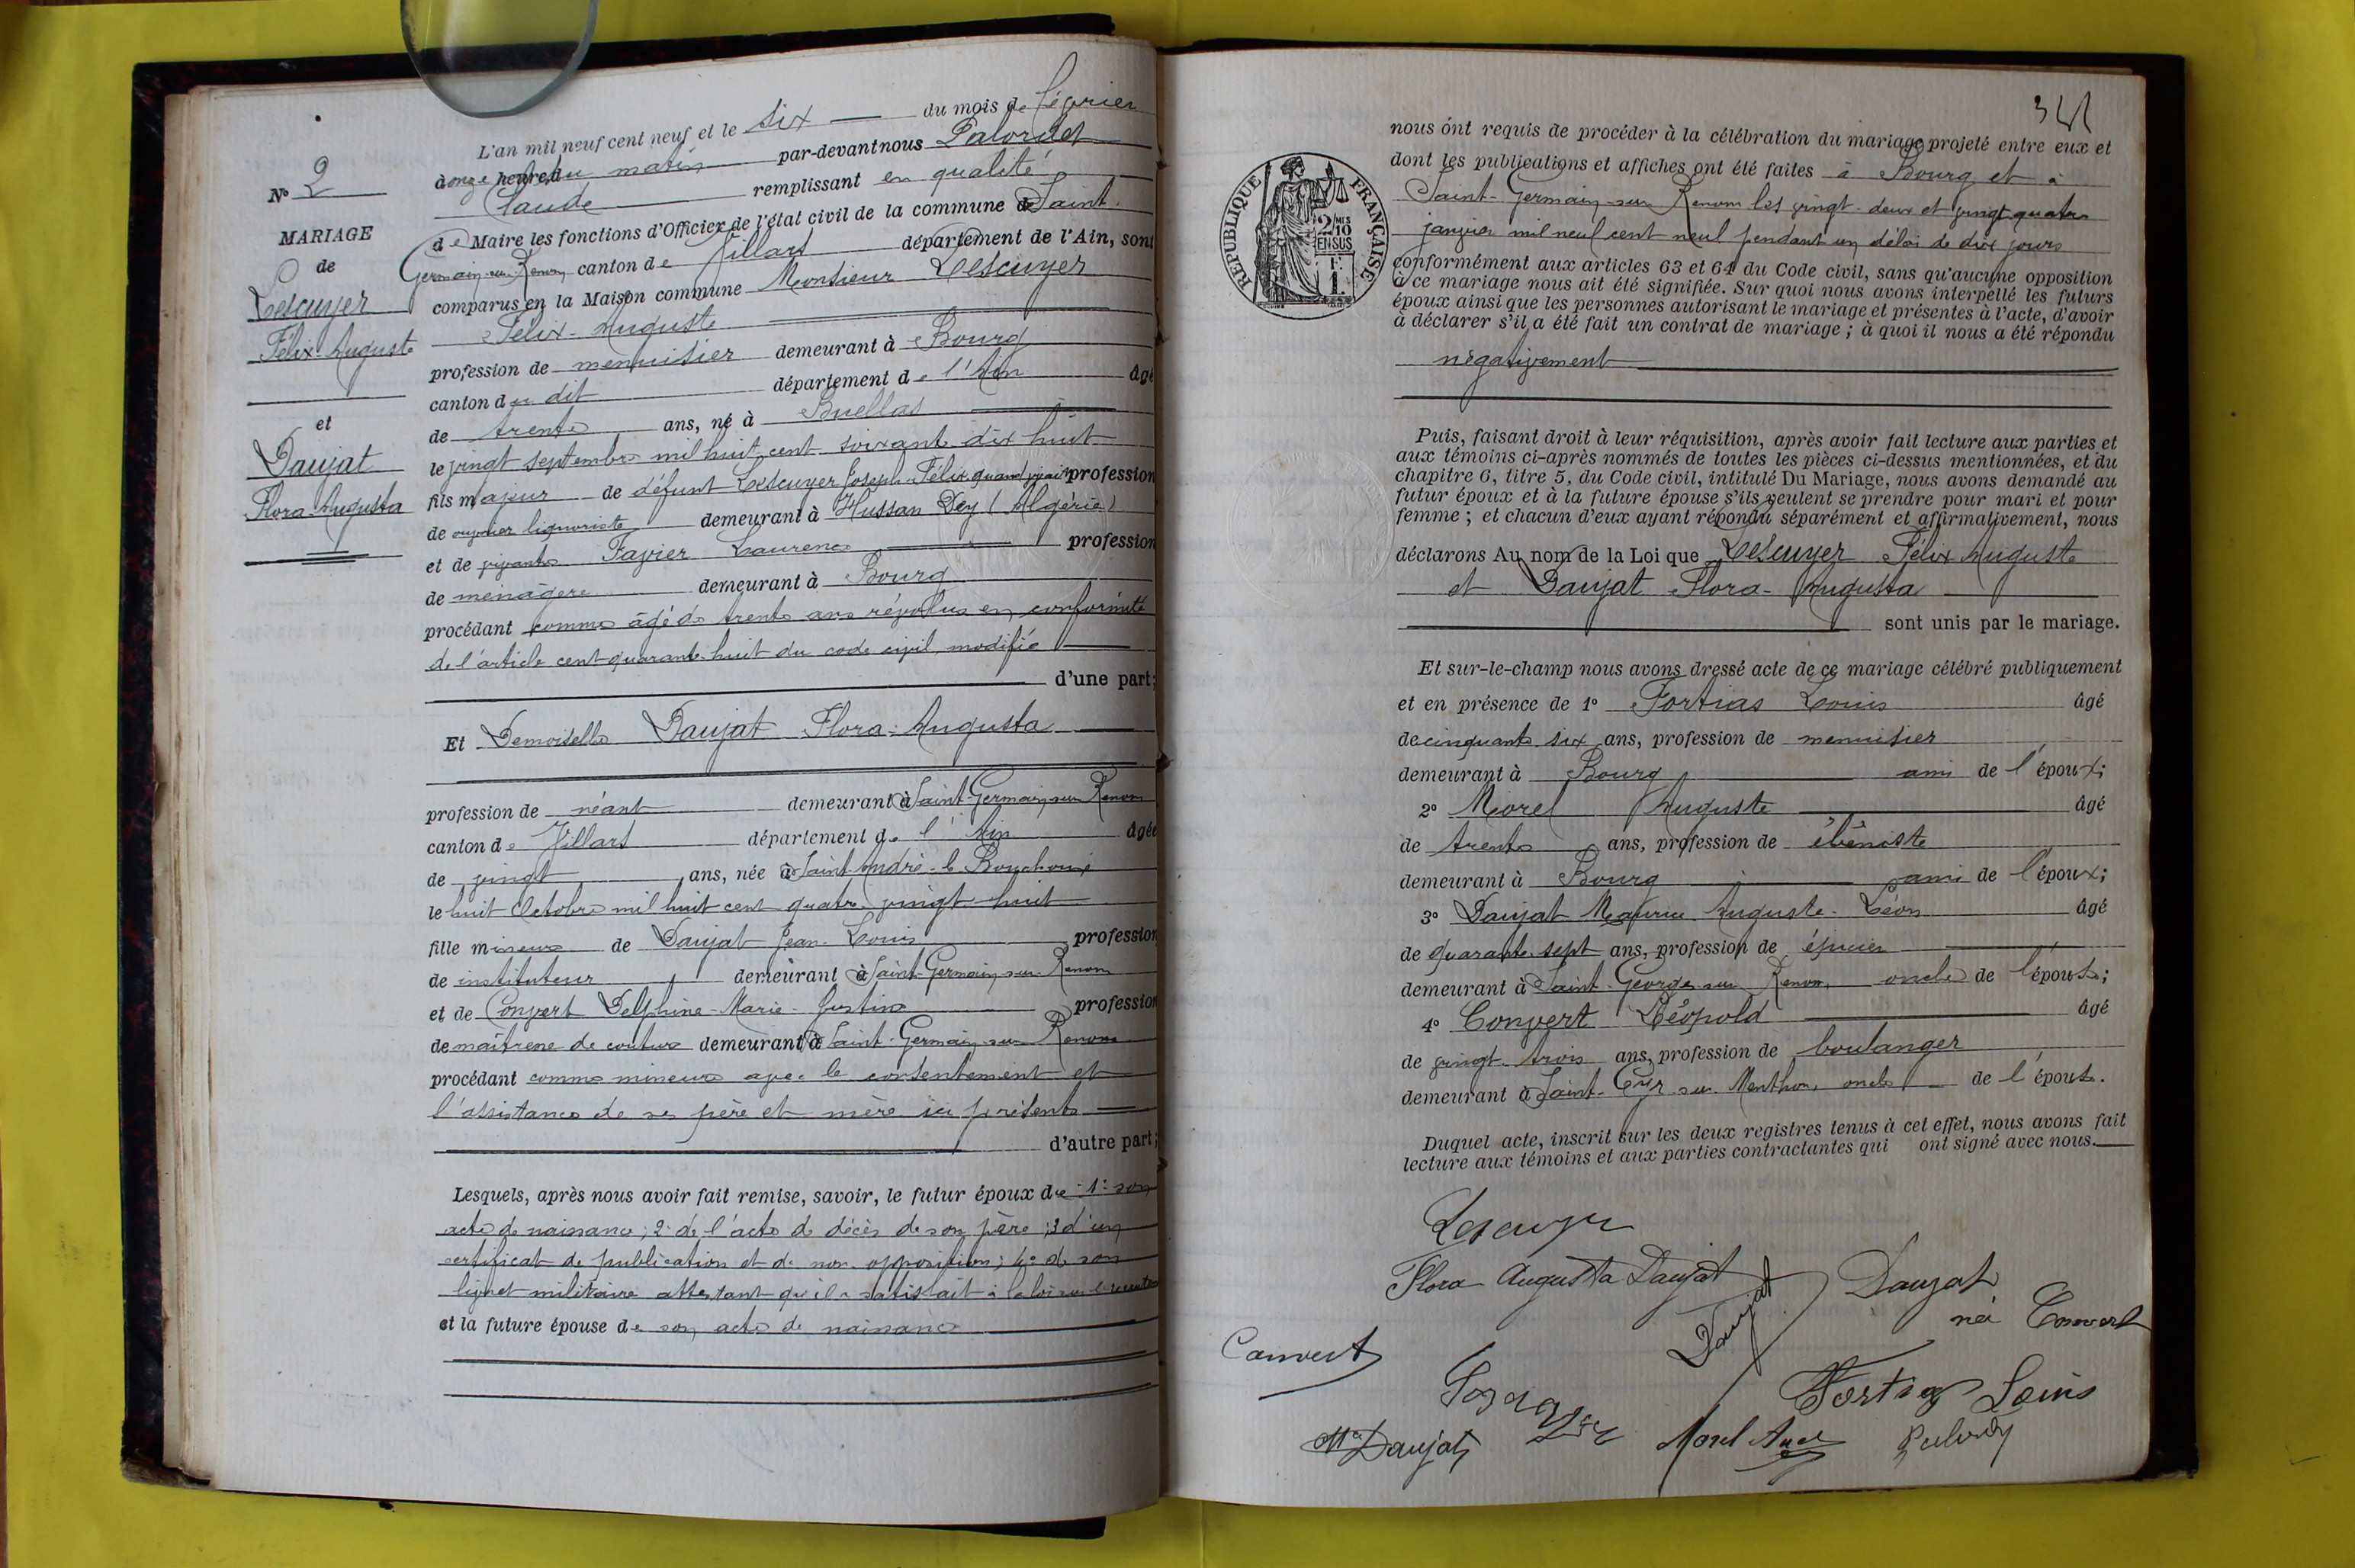 N° 2
MARIAGE
de
Lescuyer
Félix-Auguste
et
Daujat
Flora-Augusta
L'an mil neuf cent neuf et le six du mois de février
à onze heures du matin par-devant nous Palordet
Claude remplissant en qualité
de Maire les fonctions d'Officier de l'état civil de la commune de Saint
Germain-sur-Renom canton de Villars département de l'Ain, sont
comparus en la Maison commune Monsieur Lescuyer
Félix-Auguste
profession de menuisier demeurant à Bourg
canton du dit département de l'Ain âgé
de trente ans, né à Buellas
le vingt septembre mil huit cent soixante dix huit
fils majeur de défunt Lescuyer Joseph-Félix quand vivait profession
de ouvrier liquoriste demeurant à Hussan Dey (Algérie)
et de vivante Favier Laurence profession
de ménagère demeurant à Bourg
procédant comme âgé de trente ans révolus en conformité
de l'article cent quarante huit du code civil modifié
d'une part;
Et Demoiselle Daujat Flora-Augusta
profession de néant demeurant à Saint-Germain-sur-Renom
canton de Villars département de l'Ain âgée
de vingt ans, née à Saint-André-le-Bouchoux
le huit Octobre mil huit cent quatre vingt huit
fille mineure de Daujat Jean-Louis profession
de instituteur demeurant à Saint-Germain-sur-Renom
et de Convert Delphine-Marie-Justine profession
de maîtresse de couture demeurant à Saint-Germain-sur-Renom
procédant comme mineure avec le consentement et
l'assistance de ses père et mère ici présents
d'autre part;
Lesquels, après nous avoir fait remise, savoir, le futur époux de 1° son
acte de naissance; 2° de l'acte de décès de son père; 3° d'un
certificat de publication et de non opposition; 4° de son
livret militaire attestant qu'il a satisfait à la loi sur le recrutement
et la future épouse de son acte de naissance
341
RÉPUBLIQUE FRANÇAISE
2/10 MES
EN SUS
F.
1.
nous ont requis de procéder à la célébration du mariage projeté entre eux et
dont les publications et affiches ont été faites à Bourg et à
Saint-Germain-sur-Renom les vingt-deux et vingt-quatre
janvier mil neuf cent neuf pendant un délai de dix jours
conformément aux articles 63 et 64 du Code civil, sans qu'aucune opposition
à ce mariage nous ait été signifiée. Sur quoi nous avons interpellé les futurs
époux ainsi que les personnes autorisant le mariage et présentes à l'acte, d'avoir
à déclarer s'il a été fait un contrat de mariage; à quoi il nous a été répondu
négativement
Puis, faisant droit à leur réquisition, après avoir fait lecture aux parties et
aux témoins ci-après nommés de toutes les pièces ci-dessus mentionnées, et du
chapitre 6, titre 5, du Code civil, intitulé Du Mariage, nous avons demandé au
futur époux et à la future épouse s'ils veulent se prendre pour mari et pour
femme; et chacun d'eux ayant répondu séparément et affirmativement, nous
déclarons Au nom de la Loi que Lescuyer Félix Auguste
et Daujat Flora-Augusta
sont unis par le mariage.
Et sur-le-champ nous avons dressé acte de ce mariage célébré publiquement
et en présence de 1° Fortias Louis âgé
de cinquante six ans, profession de menuisier
demeurant à Bourg ami de l'époux;
2° Morel Auguste âgé
de trente ans, profession de ébéniste
demeurant à Bourg ami de l'époux;
3° Daujat Maurice Auguste-Léon âgé
de quarante sept ans, profession de épicier
demeurant à Saint-Georges-sur-Renon, oncle de l'épouse;
4° Convert Léopold âgé
de vingt-trois ans, profession de boulanger
demeurant à Saint-Cyr-sur-Menthon, oncle de l'épouse.
Duquel acte, inscrit sur les deux registres tenus à cet effet, nous avons fait
lecture aux témoins et aux parties contractantes qui ont signé avec nous.
Lescuyer
Flora Augusta Daujat
Daujat
Daujat
née Convert
Convert
Fortias Louis
Ma Daujat
Morel Aug